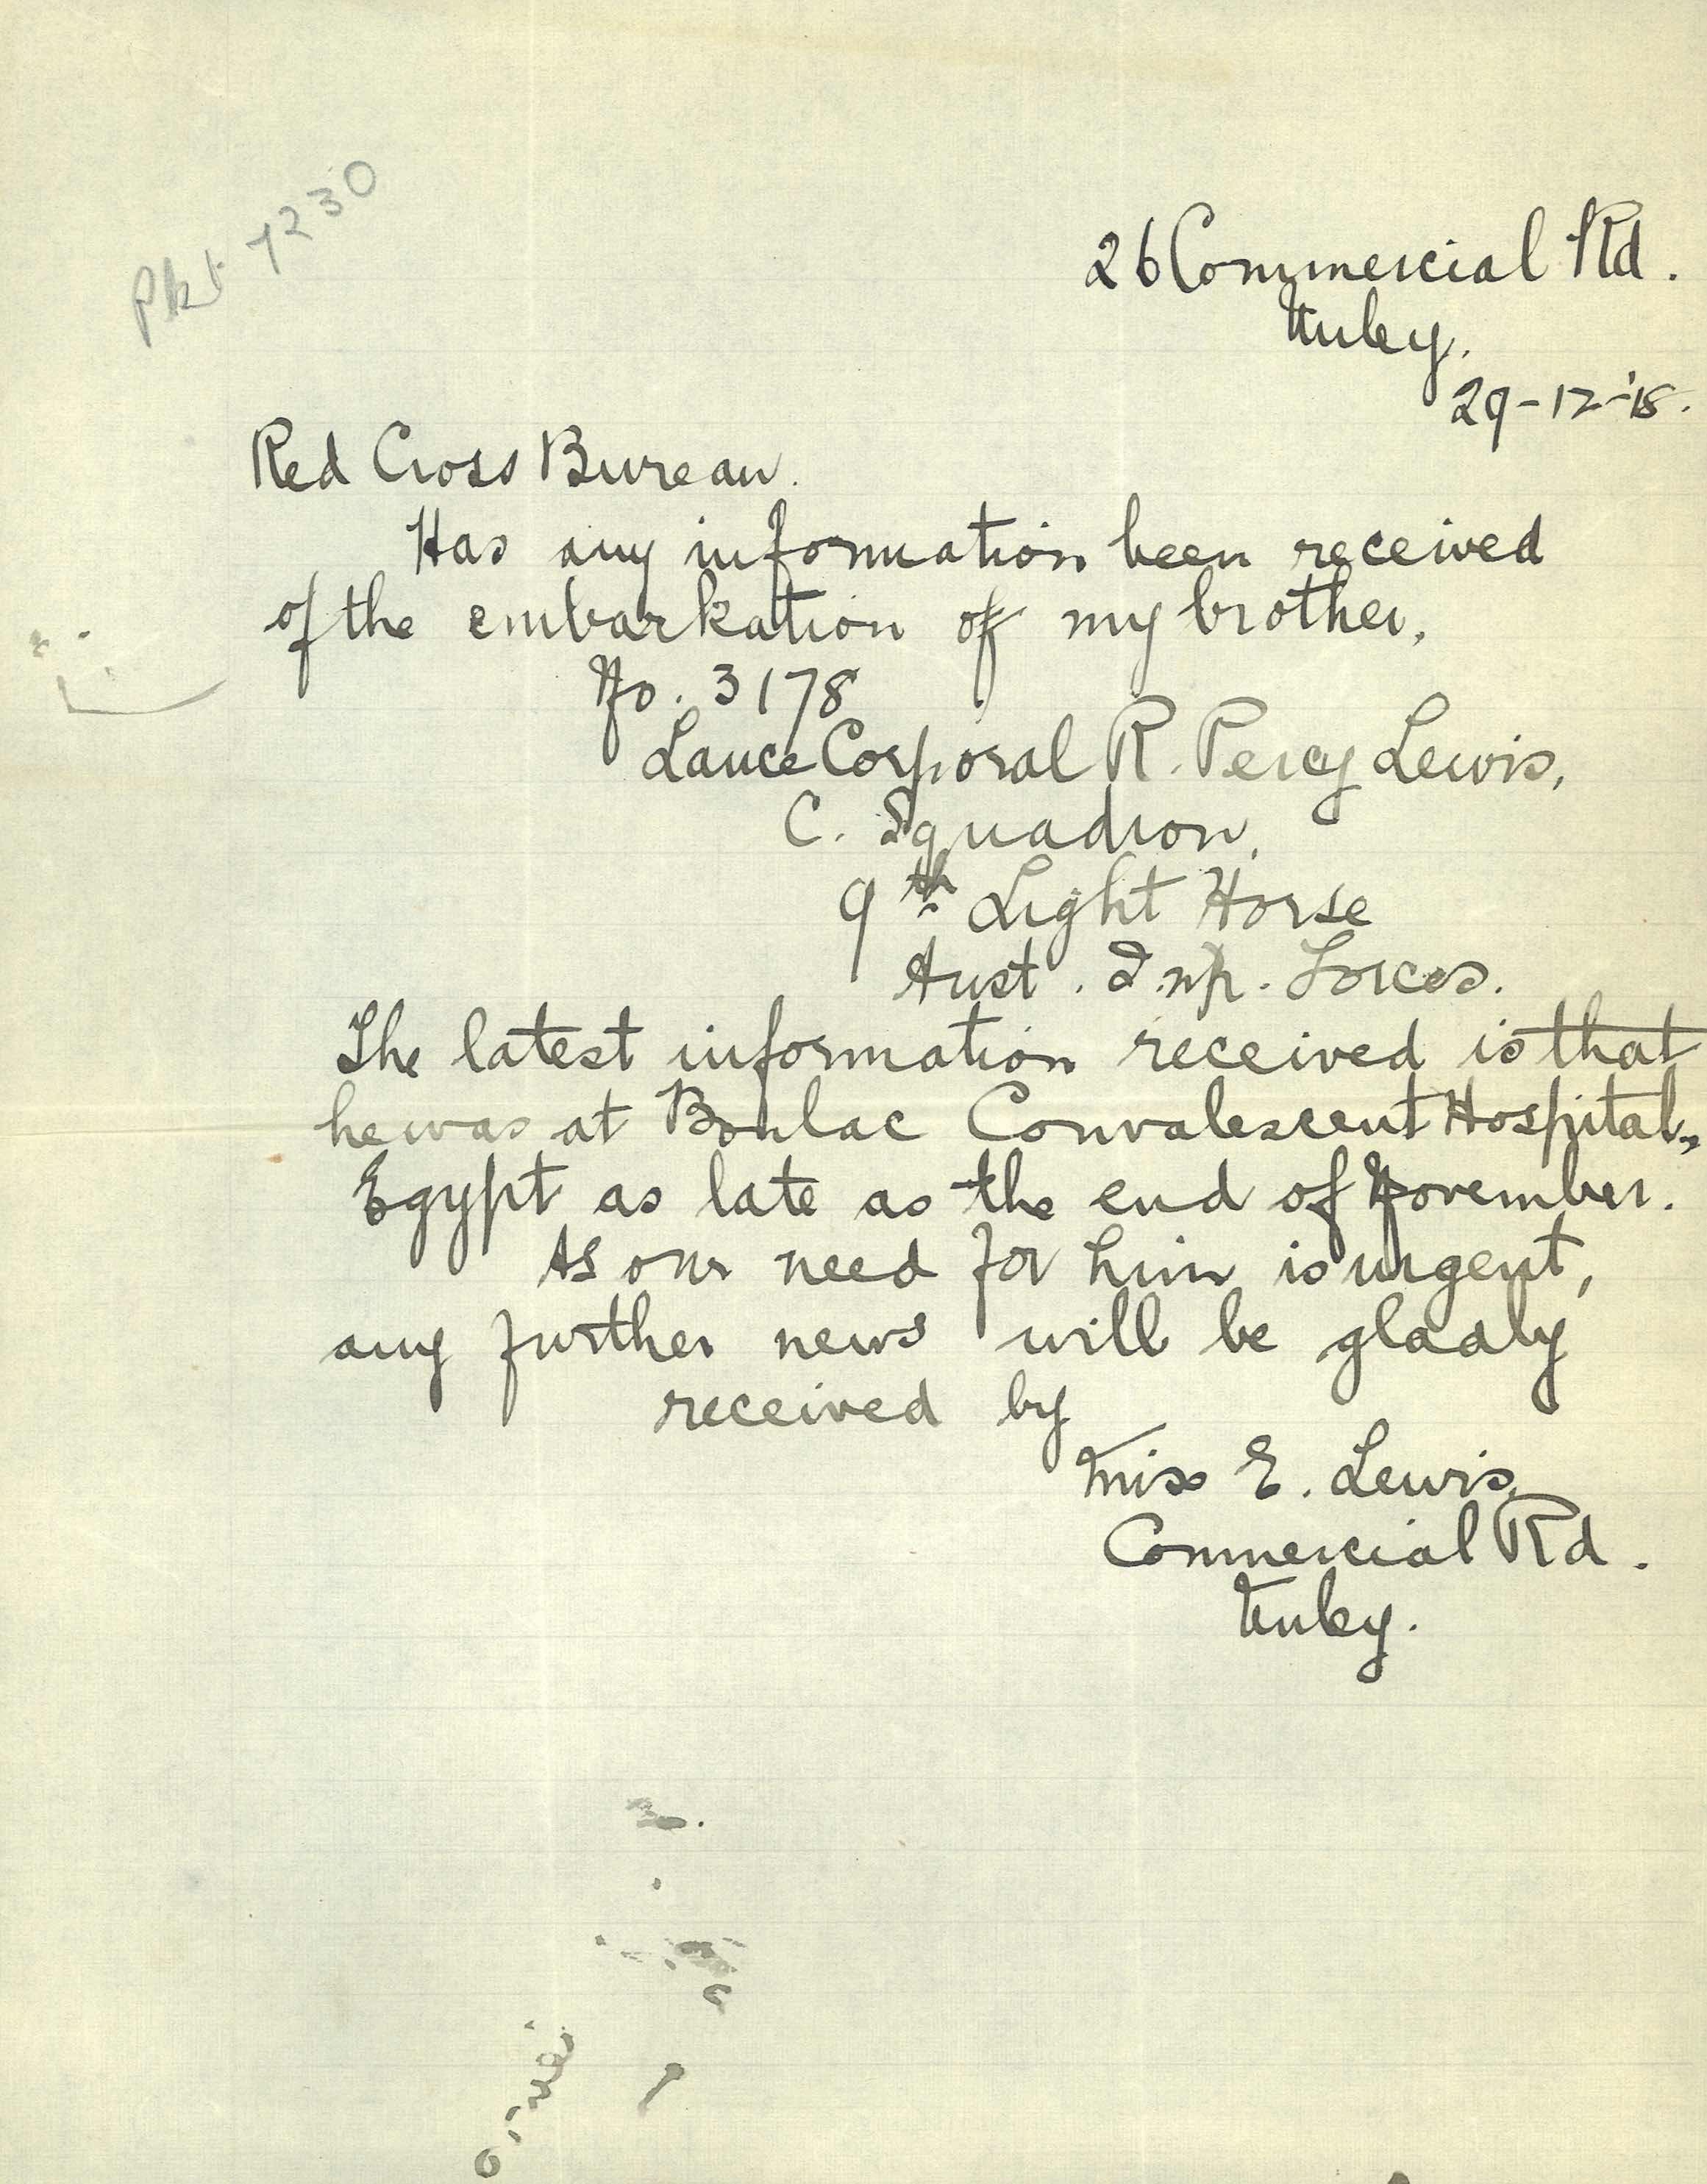 Pkt 7230
26 Commercial Rd.
Unley.
29-12-'18.
Red Cross Bureau.
Has any information been received
of the embarkation of my brother,
No. 3178
Lance Corporal R. Percy Lewis,
C. Squadron,
9th Light Horse
Aust. Imp. Forces.
The latest information received is that
he was at Boulac Convalescent Hospital,
Egypt as late as the end of November.
As our need for him is urgent,
any further news will be gladly
received by
Miss E. Lewis,
Commercial Rd.
Unley.